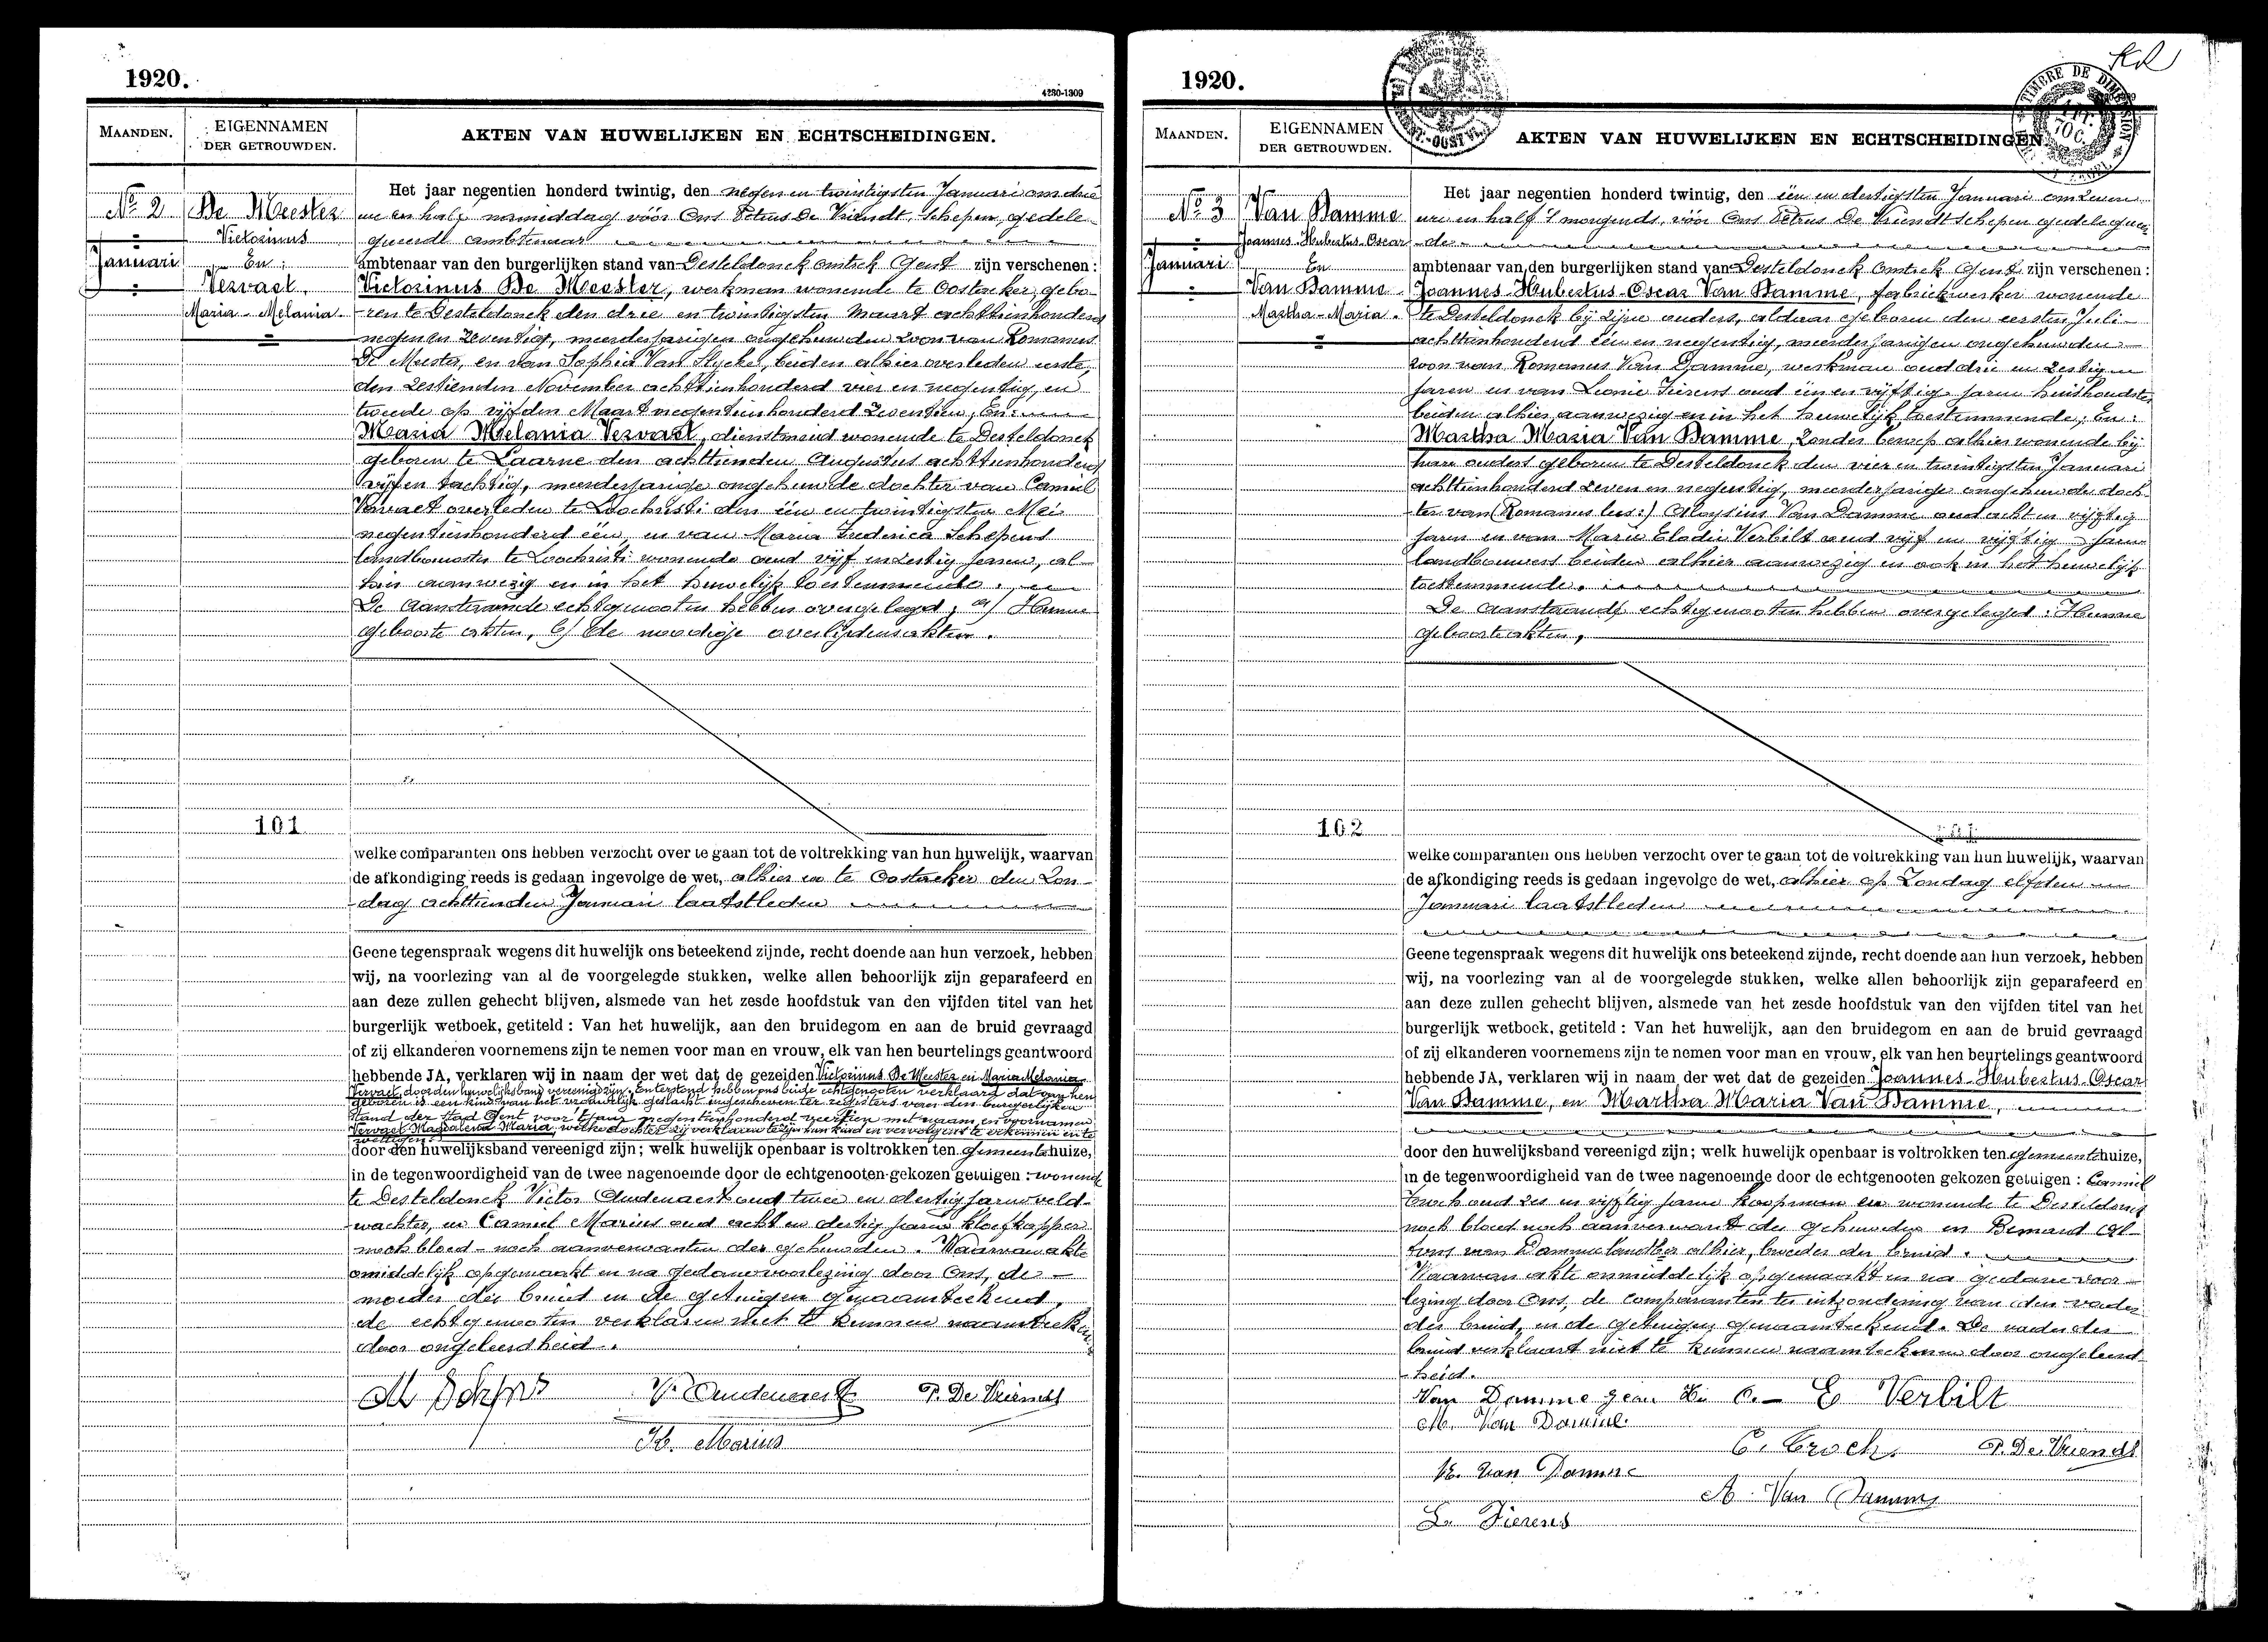 1920.
4230-1309
MAANDEN.
EIGENNAMEN
DER GETROUWDEN.
AKTEN VAN HUWELIJKEN EN ECHTSCHEIDINGEN.
No 2
Januari
De Meester
Victorinus
En
Vervaet
Maria-Melania
Het jaar negentien honderd twintig, den negen en twintigsten Januari om drie
ure en half namiddag vóór Ons Petrus De Vriendt, Schepen, gedele-
gueerde ambtenaar
ambtenaar van den burgerlijken stand van Desteldonck omtrek Gent zijn verschenen :
Victorinus De Meester, werkman wonende te Oostacker, gebo-
ren te Desteldonck den drie en twintigsten Maart achttienhonderd
negen en zeventig, meerderjarigen ongehuwden zoon van Romanus
De Meester, en van Sophia Van Slycke, beiden alhier overleden eerste,
den zestienden November achttienhonderd vier en negentig, en
tweede op vijfden Maart negentienhonderd zeventien, En:
Maria Melania Vervaet, dienstmeid wonende te Desteldonck
geboren te Laarne den achttienden Augustus achttienhonderd
vijf en tachtig, meerderjarige ongehuwde dochter van Camiel
Vervaet overleden te Loochristi den één en twintigsten Mei
negentienhonderd één, en van Maria Frederica Schepens
landbouwster te Loochristi wonende oud vijf en zestig jaren, al-
hier aanwezig en in het huwelijk toestemmende.
De aanstaande echtgenooten hebben overgelegd, a/ Hunne
geboorte akten, b/ de noodige overlijdensakten.
101
welke comparanten ons hebben verzocht over te gaan tot de voltrekking van hun huwelijk, waarvan
de afkondiging reeds is gedaan ingevolge de wet, alhier en te Oostacker den Zon-
dag achttienden Januari laatstleden
Geene tegenspraak wegens dit huwelijk ons beteekend zijnde, recht doende aan hun verzoek, hebben
wij, na voorlezing van al de voorgelegde stukken, welke allen behoorlijk zijn geparafeerd en
aan deze zullen gehecht blijven, alsmede van het zesde hoofdstuk van den vijfden titel van het
burgerlijk wetboek, getiteld : Van het huwelijk, aan den bruidegom en aan de bruid gevraagd
of zij elkanderen voornemens zijn te nemen voor man en vrouw, elk van hen beurtelings geantwoord
hebbende JA, verklaren wij in naam der wet dat de gezeiden Victorinus De Meester en Maria Melania
Vervaet, door den huwelijksband vereenigd zijn. Enterstond hebben ons beide echtgenooten verklaard dat van hen
geboren is een kind van het vrouwelijk geslacht ingeschreven ter registers van den burgerlijken
stand der stad Gent voor 't jaar negentienhonderd veertien met naam en voornamen
Vervaet Magdalena Maria, welke dochter zij verklaren te zijn hun kind en vervolgens te erkennen en te
wettigen
door den huwelijksband vereenigd zijn; welk huwelijk openbaar is voltrokken ten gemeentehuize,
in de tegenwoordigheid van de twee nagenoemde door de echtgenooten gekozen getuigen : wonende
te Desteldonck Victor Audenaert oud twee en dertig jaren veld-
wachter, en Camiel Marius oud acht en dertig jaren kloefkapper
noch bloed- noch aanverwanten der gehuwden. Waarvan akte
onmiddelijk opgemaakt en na gedane voorlezing door Ons, de
moeder der bruid en de getuigen genaamteekend,
de echtgenooten verklaren niet te kunnen naamteeken
door ongeleerdheid.
V. Audenaert P. De Vriendt
Marius
1920.
TIMBRE DE DIMENSION
MAANDEN.
EIGENNAMEN
DER GETROUWDEN.
AKTEN VAN HUWELIJKEN EN ECHTSCHEIDINGEN
No 3
Januari
Van Damme
Joannes-Hubertus-Oscar
En
Van Damme
Martha-Maria.
Het jaar negentien honderd twintig, den één en dertigsten Januari om zeven
ure en half 's morgends, vóór Ons Petrus De Vriendt schepen gedelegueer-
de
ambtenaar van den burgerlijken stand van Desteldonck omtrek Gent zijn verschenen :
Joannes-Hubertus-Oscar Van Damme, fabriekwerker wonende
te Desteldonck bij zijne ouders, aldaar geboren den eersten Juli
achttienhonderd één en negentig, meerderjarigen ongehuwden
zoon van Romanus Van Damme, werkman oud drie en zestig
jaren en van Leonie Tierens oud één en vijftig jaren huishoudster,
beiden alhier aanwezig en in het huwelijk toestemmende; En:
Martha Maria Van Damme, zonder beroep alhier wonende bij
hare ouders geboren te Desteldonck den vier en twintigsten Januari
achttienhonderd zeven en negentig, meerderjarige ongehuwde doch-
ter van (Romanus lees:) Aloysius Van Damme oud acht en vijftig
jaren en van Marie Elodie Verbilt oud vijf en vijftig jaren
landbouwers beiden alhier aanwezig en ook in het huwelijk
toestemmende.
De aanstaande echtgenooten hebben overgelegd: Hunne
geboorteakten,
102
welke comparanten ons hebben verzocht over te gaan tot de voltrekking van hun huwelijk, waarvan
de afkondiging reeds is gedaan ingevolge de wet, alhier op Zondag elfden
Januari laatstleden
Geene tegenspraak wegens dit huwelijk ons beteekend zijnde, recht doende aan hun verzoek, hebben
wij, na voorlezing van al de voorgelegde stukken, welke allen behoorlijk zijn geparafeerd en
aan deze zullen gehecht blijven, alsmede van het zesde hoofdstuk van den vijfden titel van het
burgerlijk wetboek, getiteld : Van het huwelijk, aan den bruidegom en aan de bruid gevraagd
of zij elkanderen voornemens zijn te nemen voor man en vrouw, elk van hen beurtelings geantwoord
hebbende JA, verklaren wij in naam der wet dat de gezeiden Joannes-Hubertus-Oscar
Van Damme, en Martha Maria Van Damme,
door den huwelijksband vereenigd zijn; welk huwelijk openbaar is voltrokken ten gemeentehuize,
in de tegenwoordigheid van de twee nagenoemde door de echtgenooten gekozen getuigen : Camiel
Croch oud zes en vijftig jaren koopman en wonende te Desteldonck
noch bloed noch aanverwant der gehuwden en Bernard Al-
fons van Damme landb<sup>er</sup> alhier, broeder der bruid.
Waarvan akte onmiddelijk opgemaakt en na gedane voor-
lezing door Ons, de comparanten ter uitzondering van den vader
der bruid, en de getuigen genaamteekend. De vader der
bruid verklaart niet te kunnen naamteekenen door ongeleerd-
heid.
Van Damme Jean E Verbilt
M. Van Damme
C. Croch. P. De Vriendt
Van Damme
A. Van Damme
L. Tierens